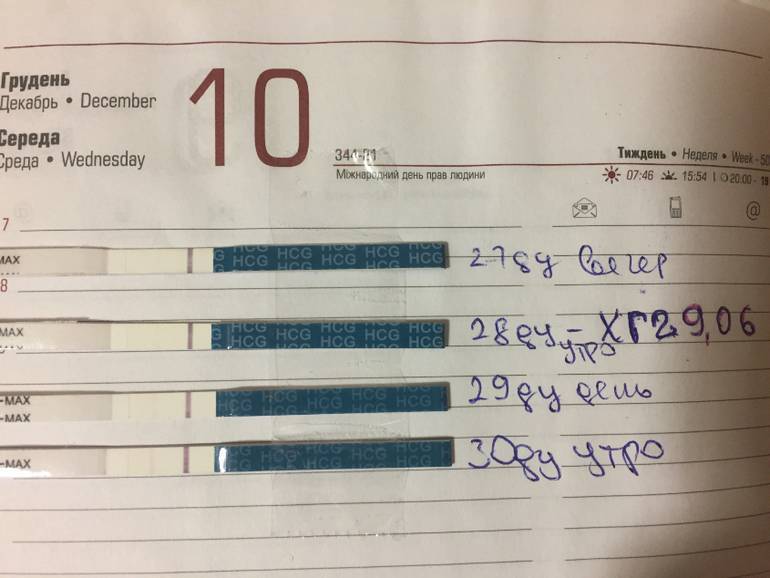 Грудень
Декабрь • December
10
Середа
Среда • Wednesday
344-21
Міжнародний день прав людини
Тиждень • Неделя • Week - 50
07:46 15:54 20:00 - 19
7
MAX
HCG HCG HCG HCG
G HCG HCG HCG HCG
27ду вечер
8
MAX
HCG HCG HCG HCG
G HCG HCG HCG HCG
28ду - ХГ29,06
утро
-MAX
-MAX
HCG HCG HCG HCG
HCG HCG HCG HCG
29ду день
-MAX
HCG HCG HCG HCG
30ду утро